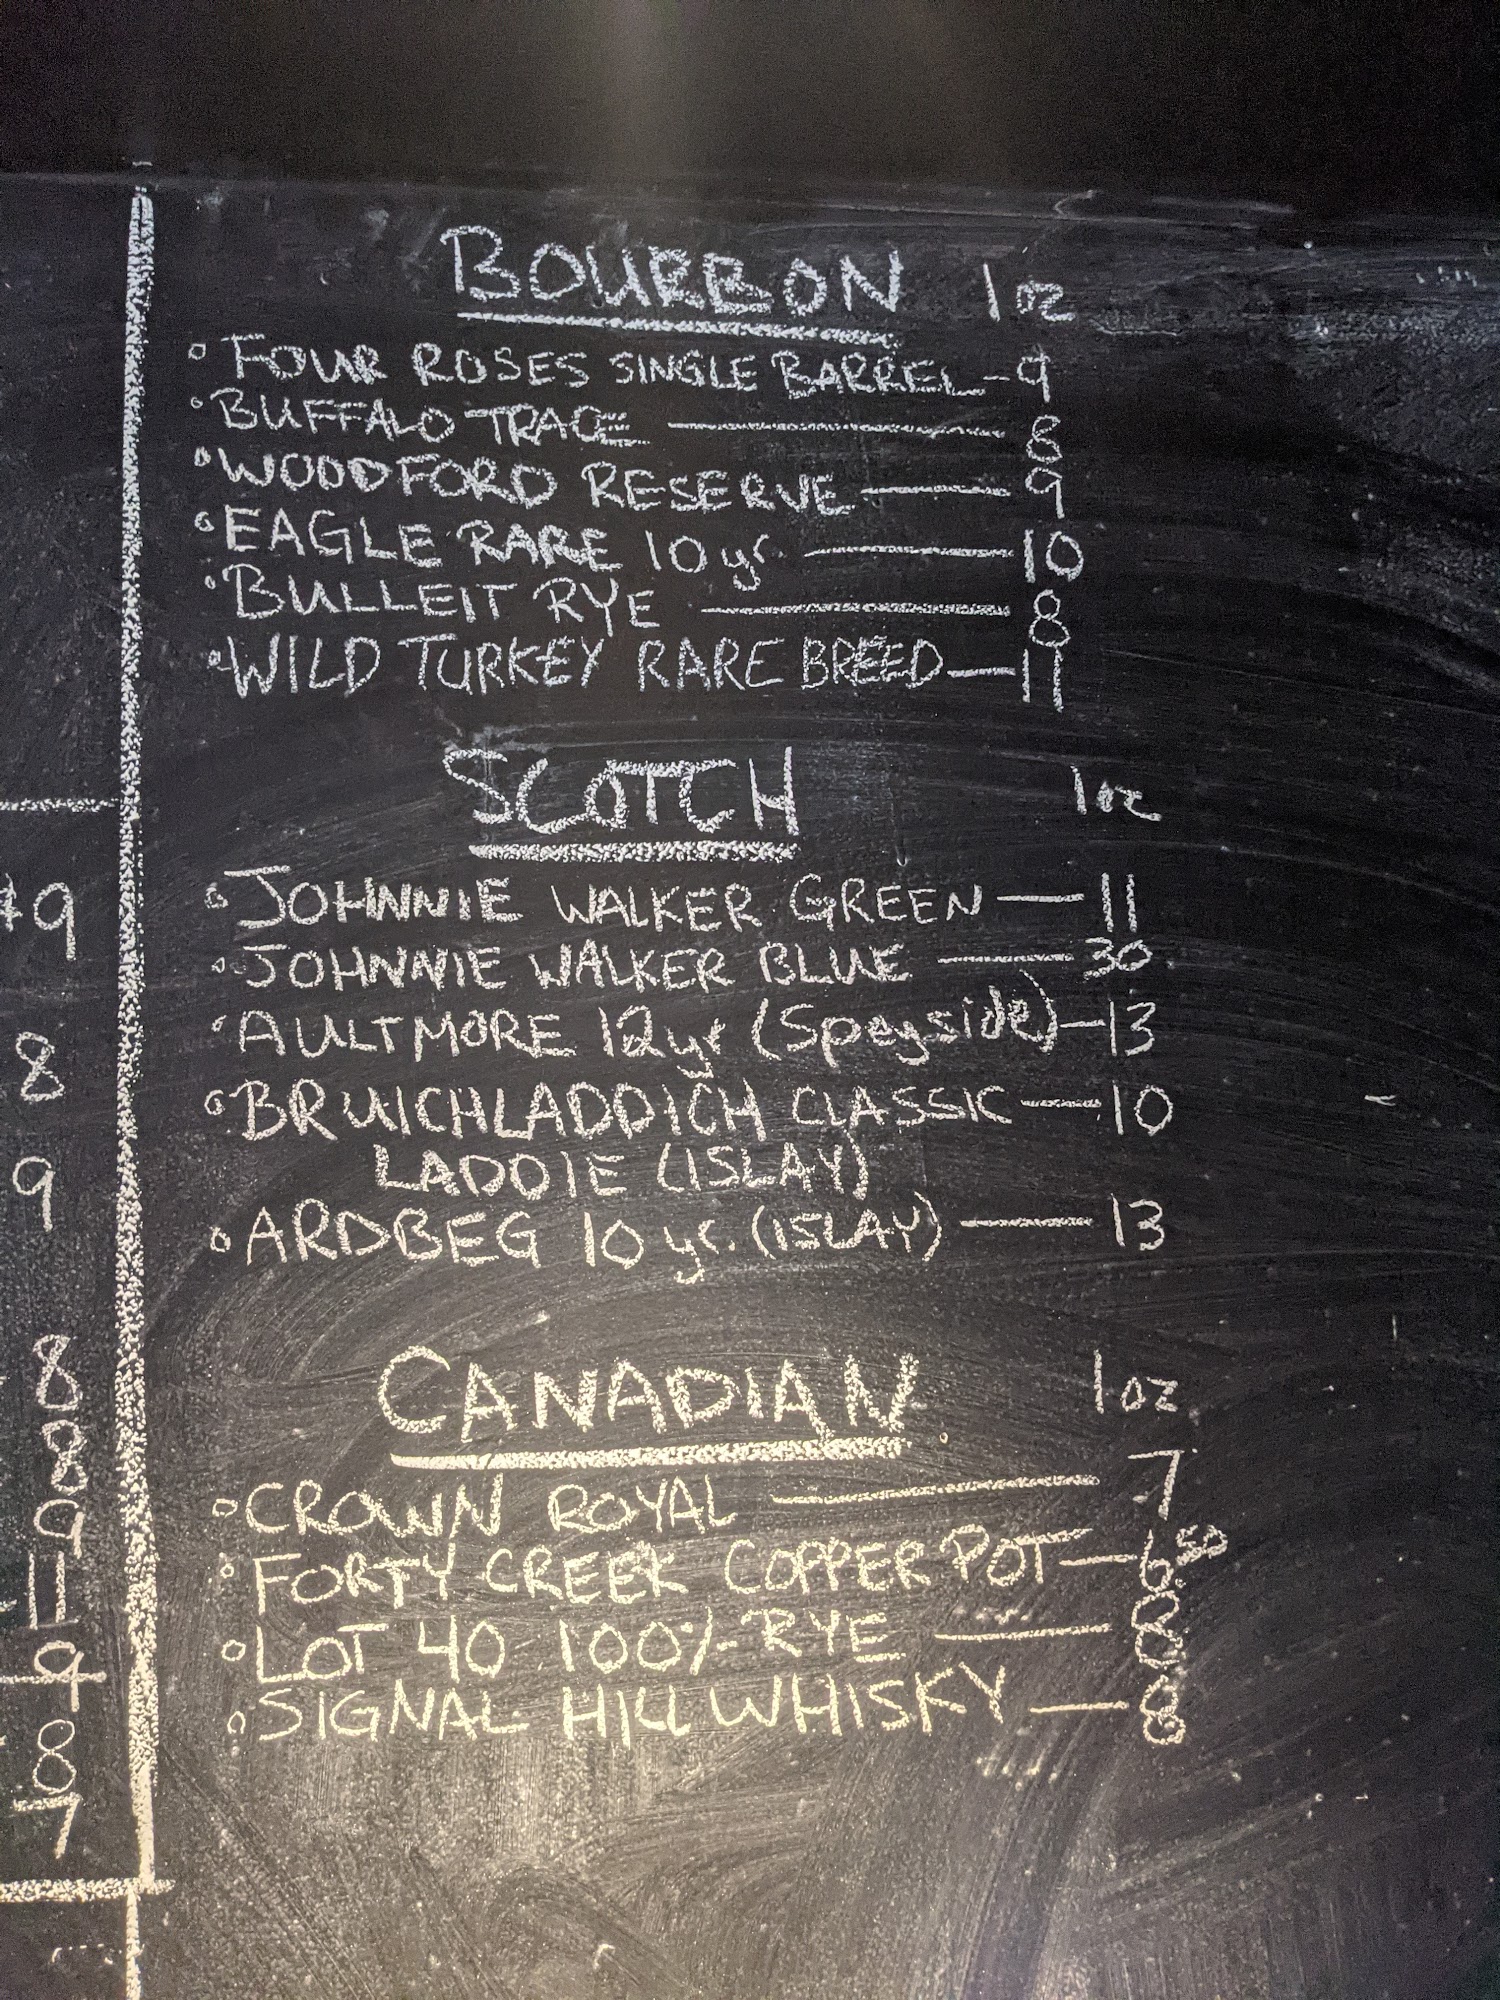 BOURBON 1 oz
◦ FOUR ROSES SINGLE BARREL - 9
◦ BUFFALO TRACE — 8
◦ WOODFORD RESERVE — 9
◦ EAGLE RARE 10 yr. — 10
◦ BULLEIT RYE — 8
◦ WILD TURKEY RARE BREED — 11
SCOTCH 1 oz
◦ JOHNNIE WALKER GREEN — 11
◦ JOHNNIE WALKER BLUE — 30
◦ AULTMORE 12 yr (Speyside) — 13
◦ BRUICHLADDICH CLASSIC — 10
LADDIE (ISLAY)
◦ ARDBEG 10 yr. (ISLAY) — 13
CANADIAN 1 oz
◦ CROWN ROYAL — 7
◦ FORTY CREEK COPPER POT — 6.50
◦ LOT 40 100% RYE — 8
◦ SIGNAL HILL WHISKY — 8
9
8
9
8
8
9
11
9
8
7